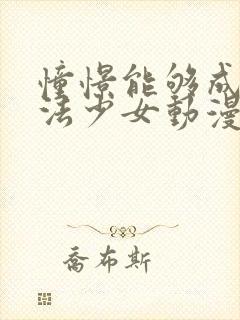 憧憬能够成
法少女動漫
喬布斯